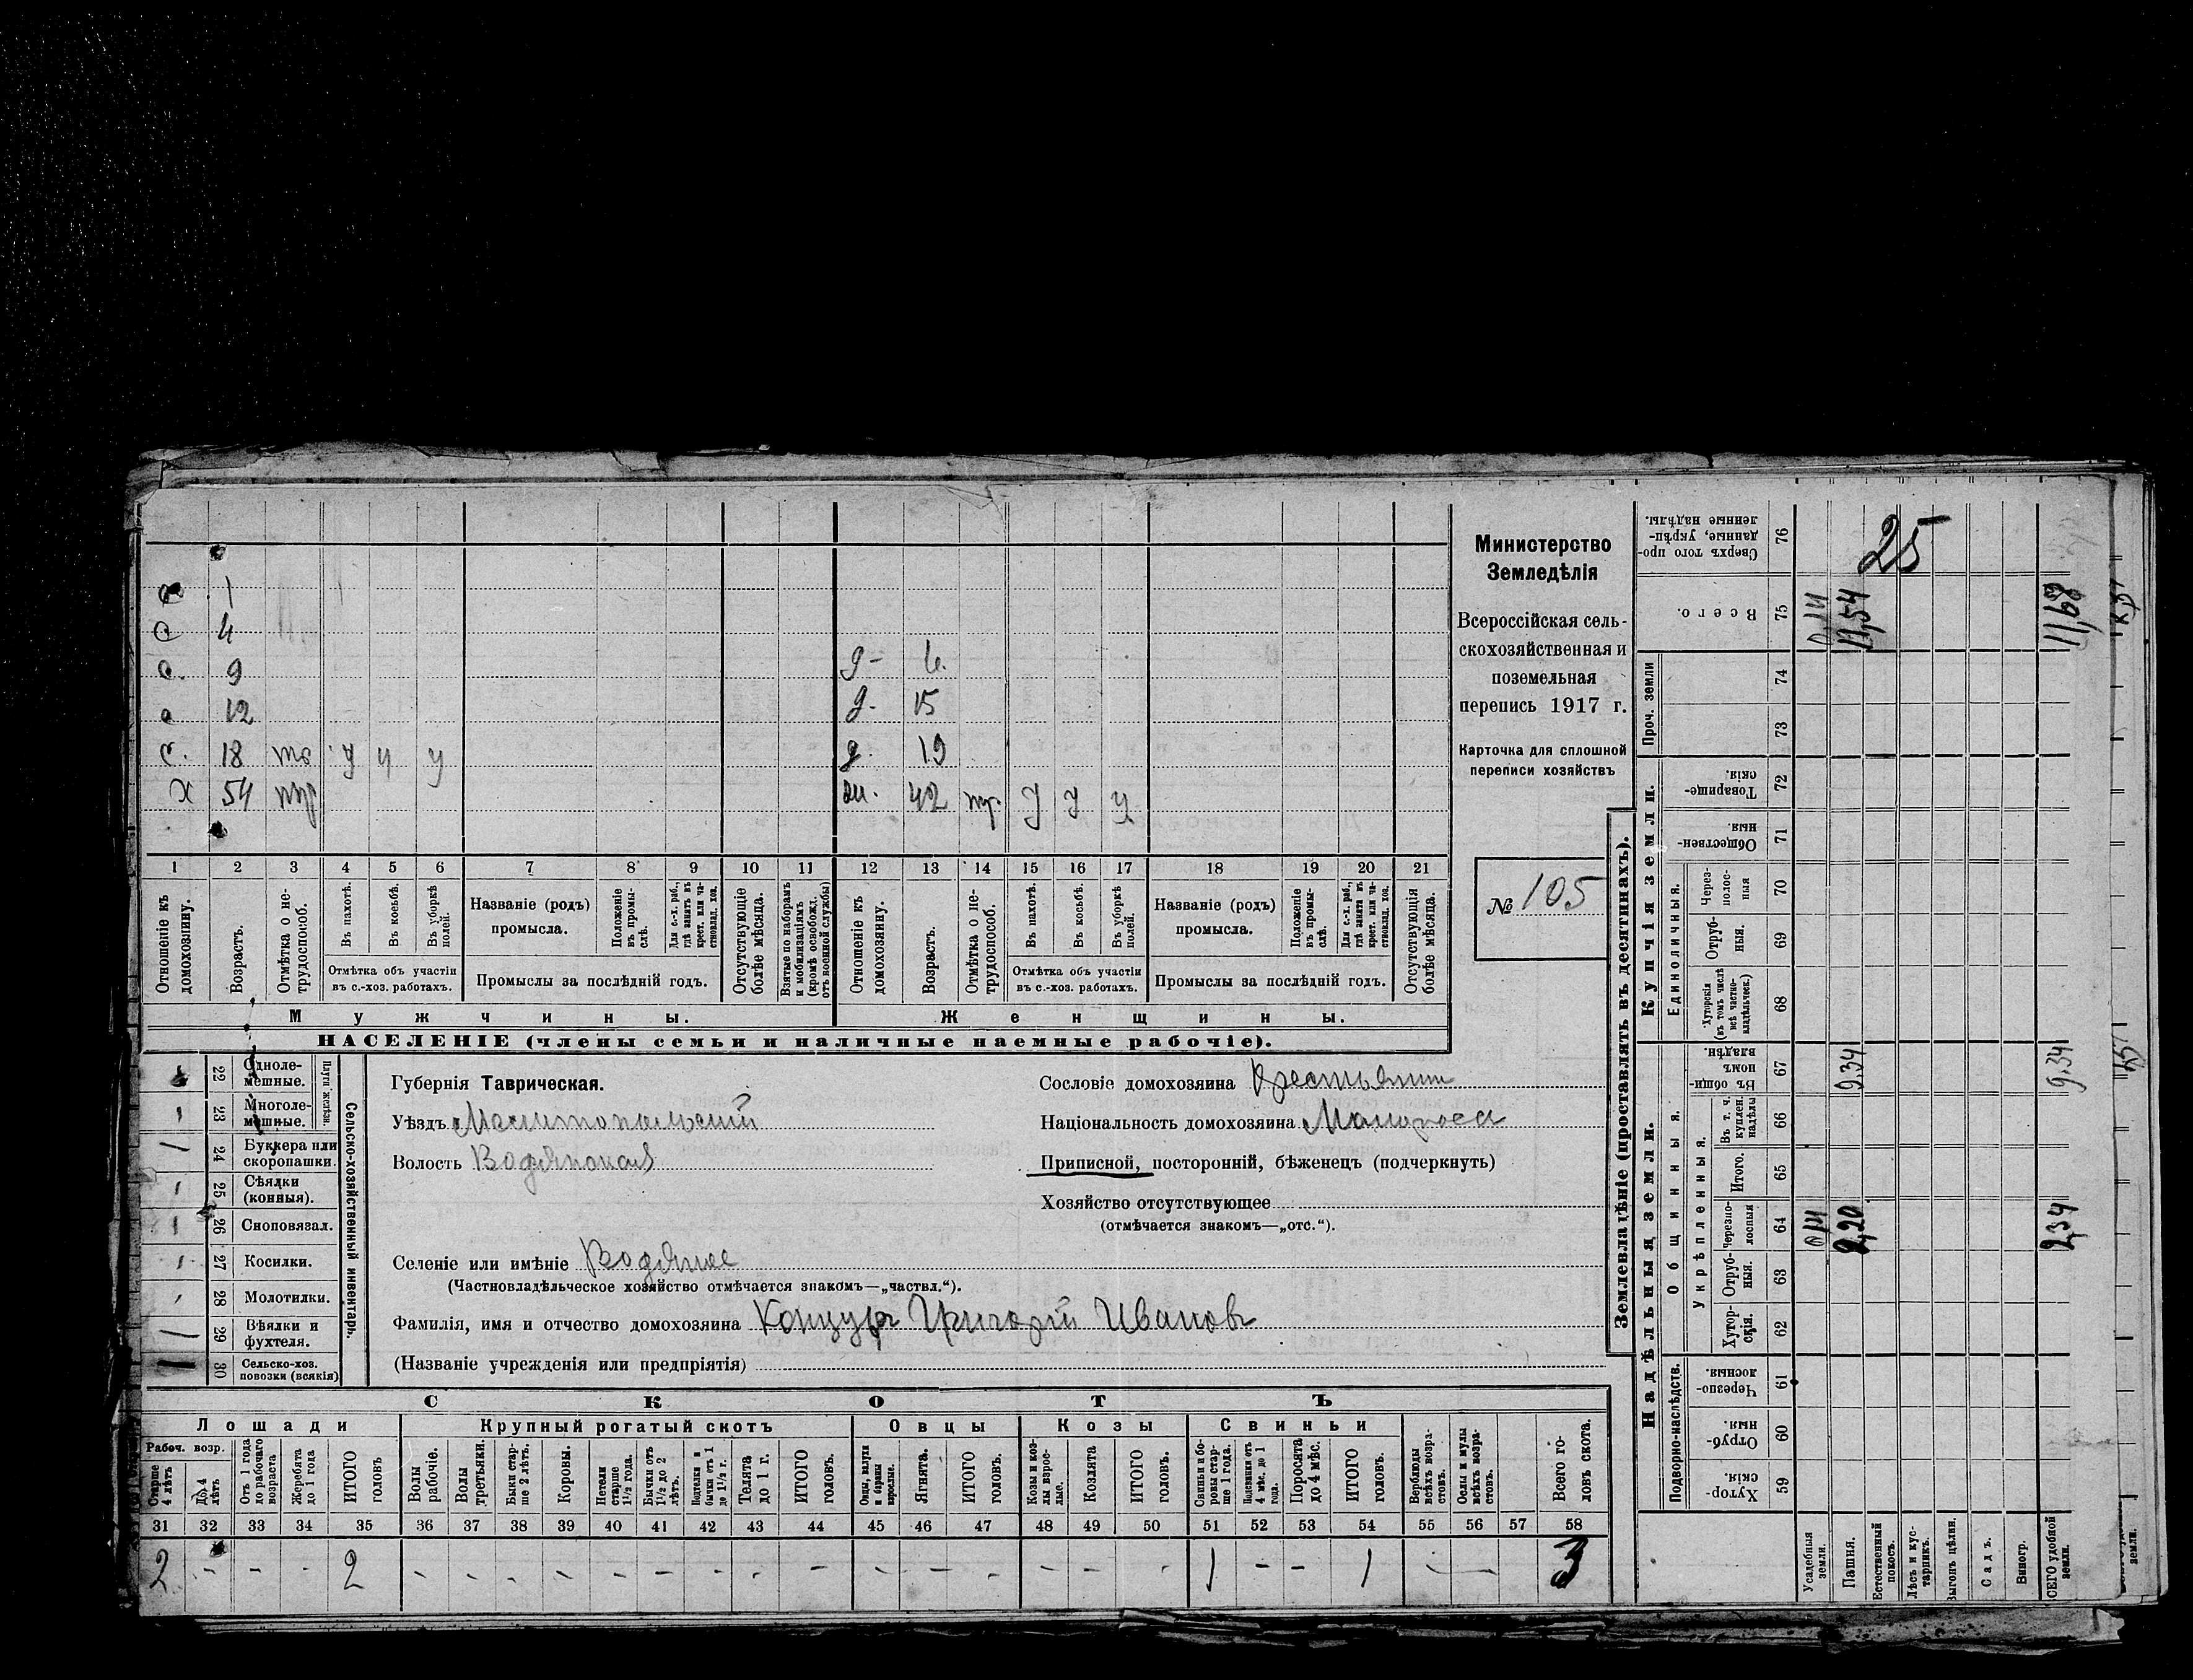 с 1
с 4
с. 9 д- 6.
с 12 д- 15
с. 18 тр. у у у д. 19
х 54 тр ж. 42 тр. у у у
1 2 3 4 5 6 7 8 9 10 11 12 13 14 15 16 17 18 19 20 21
Отношеніе къ домохозяину.
Возрастъ.
Отмѣтка о нетрудоспособ.
Въ пахотѣ.
Въ косьбѣ.
Въ уборкѣ полей.
Отмѣтка объ участіи въ с.-хоз. работахъ.
Названіе (родъ) промысла.
Положеніе въ промыслѣ.
Для с.-х. раб., гдѣ занятъ въ крест. или частновлад. хоз.
Промыслы за послѣдній годъ.
Отсутствующіе болѣе мѣсяца.
Взятые по наборамъ и мобилизаціямъ (кромѣ освобожд. отъ военной службы)
Отношеніе къ домохозяину.
Возрастъ.
Отмѣтка о нетрудоспособ.
Въ пахотѣ.
Въ косьбѣ.
Въ уборкѣ полей.
Отмѣтка объ участіи въ с.-хоз. работахъ.
Названіе (родъ) промысла.
Положеніе въ промыслѣ.
Для с.-х. раб., гдѣ занята въ крест. или частновлад. хоз.
Промыслы за послѣдній годъ.
Отсутствующія болѣе мѣсяца.
Мужчины. Женщины.
НАСЕЛЕНІЕ (члены семьи и наличные наемные рабочіе).
Министерство
Земледѣлія
Всероссійская сель-
скохозяйственная и
поземельная
перепись 1917 г.
Карточка для сплошной
переписи хозяйствъ
№ 105
22 Однолемешные.
23 Многолемешные.
Плуги желѣзн.
24 Буккера или скоропашки.
25 Сѣялки (конныя).
26 Сноповязал.
27 Косилки.
28 Молотилки.
29 Вѣялки и фухтеля.
30 Сельско-хоз. повозки (всякія)
Сельско-хозяйственный инвентарь.
Губернія Таврическая.
Уѣздъ Мелитопольскій
Волость Водянская
Сословіе домохозяина Крестьянин
Національность домохозяина Малоросс
Приписной, посторонній, бѣженецъ (подчеркнуть)
Хозяйство отсутствующее
(отмѣчается знакомъ—„отс.“).
Селеніе или имѣніе Водяное
(Частновладѣльческое хозяйство отмѣчается знакомъ—„частвл.“).
Фамилія, имя и отчество домохозяина Концуръ Григорій Ивановъ
(Названіе учрежденія или предпріятія)
СКОТЪ
Лошади Крупный рогатый скотъ Овцы Козы Свиньи
Рабоч. возр.
Старше 4 лѣтъ
До 4 лѣтъ
Отъ 1 года до рабочаго возраста
Жеребята до 1 года
ИТОГО головъ
Волы рабочіе.
Волы третьяки.
Быки старше 2 лѣтъ.
Коровы.
Нетели старше 1½ года.
Бычки отъ 1½ до 2 лѣтъ.
Подтелки и бычки отъ 1 до 1½ г.
Телята до 1 г.
ИТОГО головъ.
Овцы, валухи и бараны взрослые.
Ягнята.
ИТОГО головъ.
Козы и козлы взрослые.
Козлята
ИТОГО головъ.
Свиньи и боровы старше 1 года.
Подсвинки отъ 4 мѣс. до 1 года.
Поросята до 4 мѣс.
ИТОГО головъ.
Верблюды всѣхъ возрастовъ.
Ослы и мулы всѣхъ возрастовъ.
Всего головъ скота.
31 32 33 34 35 36 37 38 39 40 41 42 43 44 45 46 47 48 49 50 51 52 53 54 55 56 57 58
2 - - - 2 - - - - - - - - - - - - - - - 1 - - 1 - - 3
Землевладѣніе (проставлять въ десятинахъ).
Надѣльныя земли.
Купчія земли.
Проч. земли
Подворно-наслѣдств.
Общинныя.
Укрѣпленныя.
Единоличныя.
Хуторскія. 59
Отрубныя. 60
Черезполосныя. 61
Хуторскія. 62
Отрубныя. 63
Черезполосныя 64
Итого. 65
Въ т. ч. куплен. надѣлы 66
Въ общинномъ владѣн. 67
Хуторскія (въ томъ числѣ всѣ частновладѣльческ.) 68
Отрубныя. 69
Черезполосныя 70
Общественныя. 71
Товарищескія. 72
73
74
Всего. 75
Сверхъ того проданные, укрѣпленные надѣлы. 76
Усадебныя земли. 0,14 0,14
Пашня. 2,20 9,34 11,54 25
Естественный покосъ.
Лѣсъ и кустарникъ.
Выгонъ цѣлин.
Садъ.
Виногр.
СЕГО удобной земли. 2,34 9,34 11,68
земли.